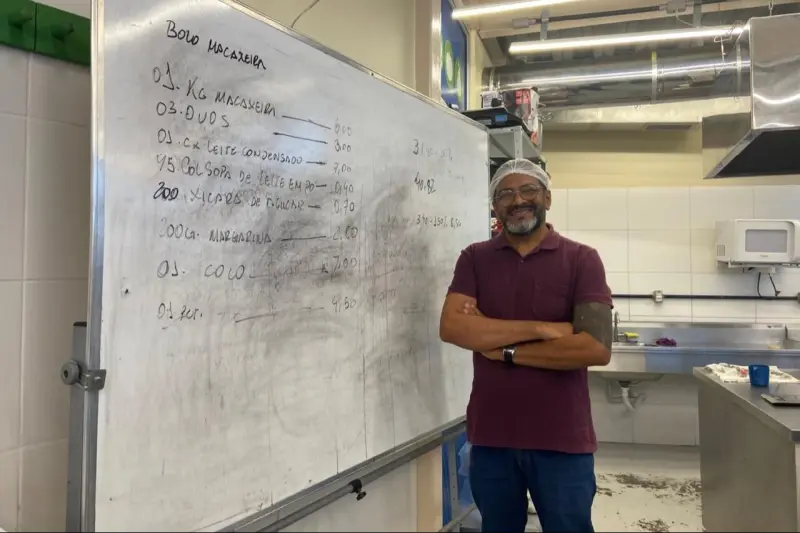 BOLO MACAXEIRA
01. KG MACAXEIRA 6,00
03. OVOS 3,00
01. CX LEITE CONDENSADO 7,00
COL SOPA DE LEITE EM PÓ 0,40
200 XICARA DE AÇUCAR 0,70
200G. MARGARINA 2,00
01. COCO 7,00
01. 4,50
40,82